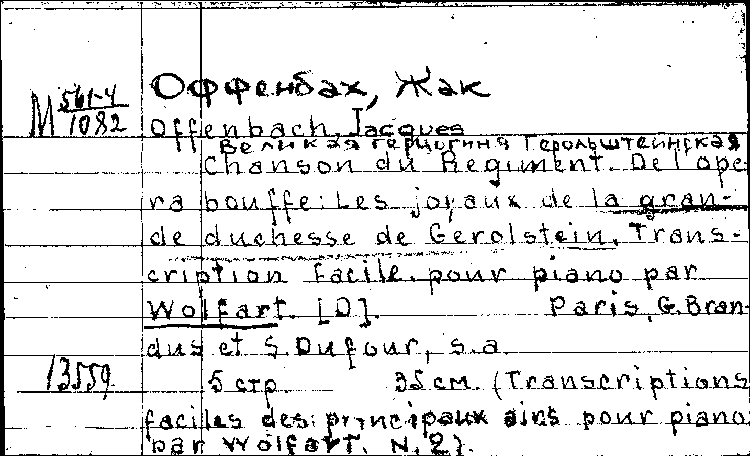 Оффенбах, Жак
М 561-4
1082
Offenbach, Jacques
Великая герцогиня Герольштейнская
Chanson du Regiment. De l'ope-
ra bouffe: Les joyaux de la gran-
de duchesse de Gerolstein. Trans-
cription facile pour piano par
Wolfart. [D]. Paris, G. Bran-
dus et S. Dufour, s.a.
13559 5 стр. 35 см. (Transcriptions
faciles des principaux airs pour piano
par Wolfart. N. 2).